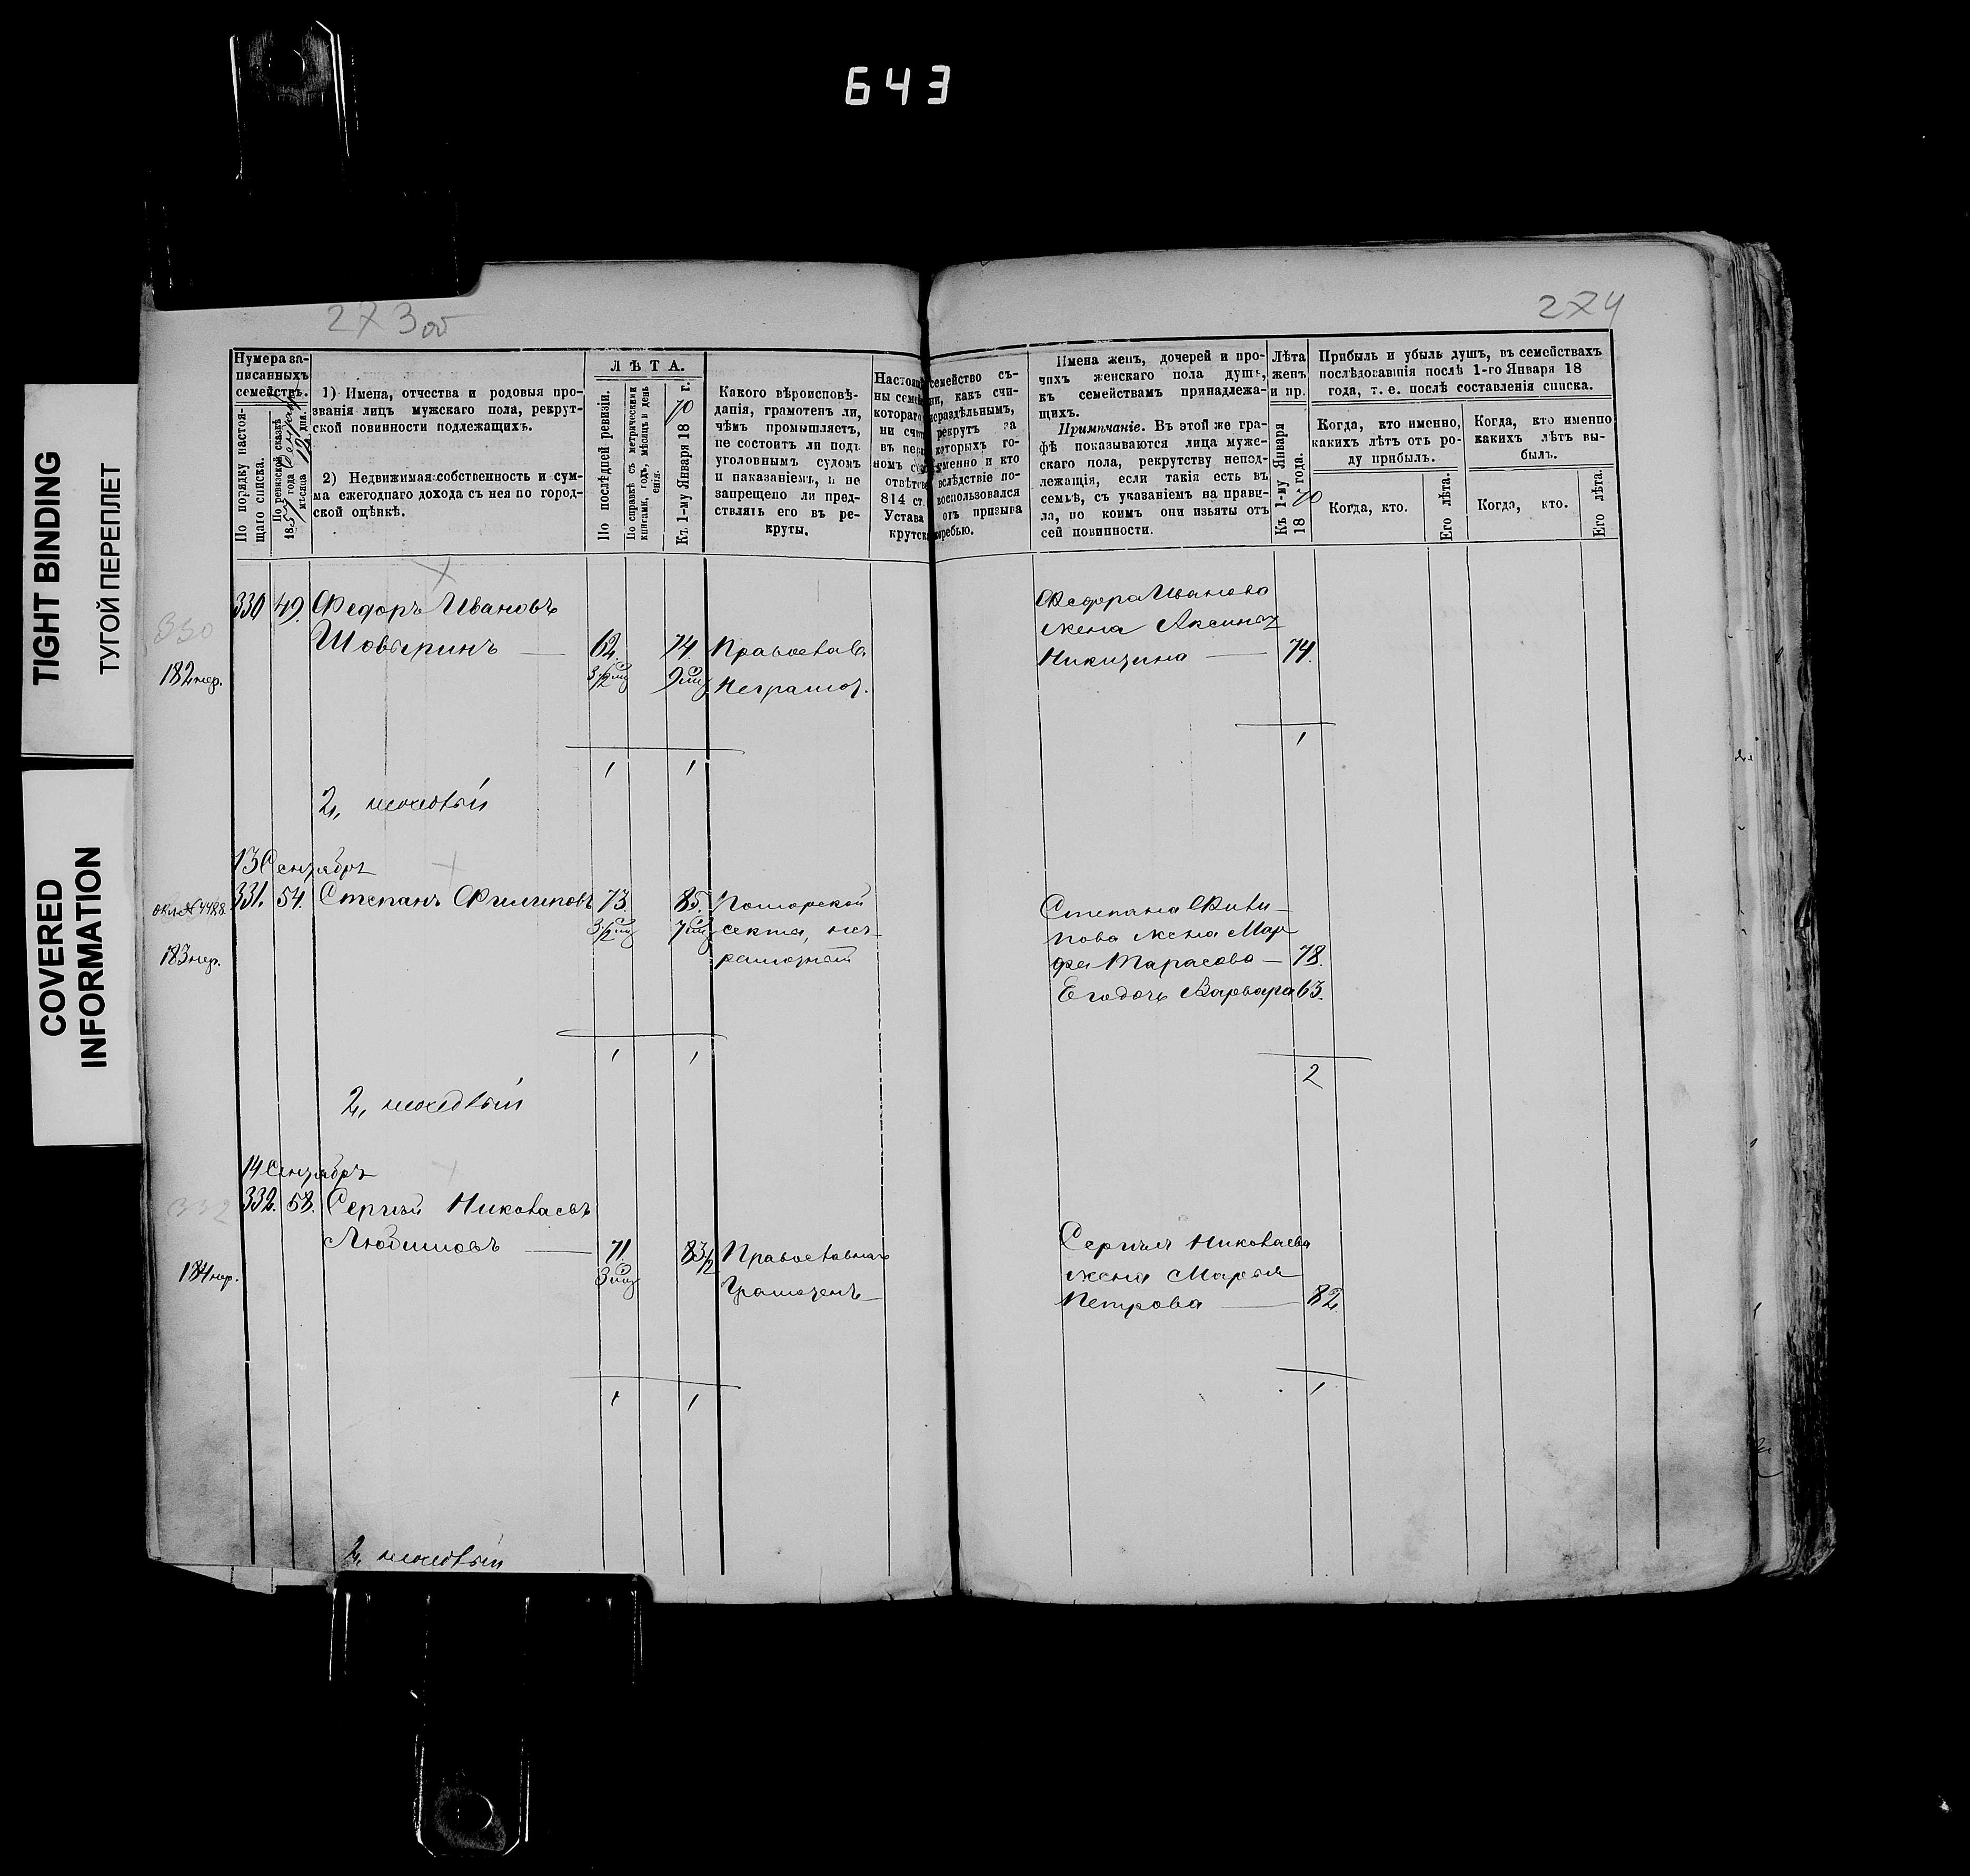 643
TIGHT BINDING
ТУГОЙ ПЕРЕПЛЕТ
COVERED
INFORMATION
273 об
274
Нумера за-
писанныхъ
семействъ.
По порядку настоя-
щаго списка.
По ревизской сказкѣ
185 года
мѣсяца дня.
1) Имена, отчества и родовыя про-
званія лицъ мужскаго пола, рекрут-
ской повинности подлежащихъ.
2) Недвижимая собственность и сум-
ма ежегоднаго дохода съ нея по город-
ской оцѣнкѣ.
ЛѢТА.
По послѣдней ревизіи.
По справкѣ съ метрическими
книгами, годъ, мѣсяцъ и день
Къ 1-му Января 1870 г.
Какого вѣроисповѣ-
данія, грамотенъ ли,
чѣмъ промышляетъ,
не состоитъ ли подъ
уголовнымъ судомъ
и наказаніемъ, и не
запрещено ли пред-
ставлять его въ ре-
круты.
семейство съ-
какъ счи-
рекрутъ за
которыхъ го-
именно и кто
вслѣдствіе по-
814 ст. воспользовался
Устава отъ призыва
Имена женъ, дочерей и про-
чихъ женскаго пола душъ,
къ семействамъ принадлежа-
щихъ.
Примѣчаніе. Въ этой же гра-
фѣ показываются лица муже-
скаго пола, рекрутству непод-
лежащія, если такія есть въ
семьѣ, съ указаніемъ на прави-
ла, по коимъ они изъяты отъ
сей повинности.
Лѣта
женъ
и пр.
Къ 1-му Января
1870 года.
Прибыль и убыль душъ, въ семействахъ
послѣдовавшія послѣ 1-го Января 18
года, т. е. послѣ составленія списка.
Когда, кто именно,
какихъ лѣтъ отъ ро-
ду прибылъ.
Когда, кто именно
какихъ лѣтъ вы-
былъ.
Когда, кто.
Его лѣта.
Когда, кто.
Его лѣта.
330 49. Федоръ Ивановъ
330
Шовыринъ — 62. 74. Православ.
182 нер.
3½ 9 Неграмот.
Федора Иванова
жена Аксинья
Никитина — 74.
1
1 1
2,
13 Сентября
331. 54. Степанъ Филиповъ 73. 85. Поморской
№ 4428
3½ 7 секты, нег-
183 нер.
рамотный
Степана Фили-
пова жена Мар
фа Тарасова — 78.
Его дочь Варвара 63.
1 1
2
2,
14 Сентября
332. 58. Сергѣй Николаевъ
332
Любимовъ — 71. 83½ Православнаго
184 нер.
3 Грамотенъ
Сергѣя Николаева
жена Марья
Петрова — 82.
1 1
1
2,